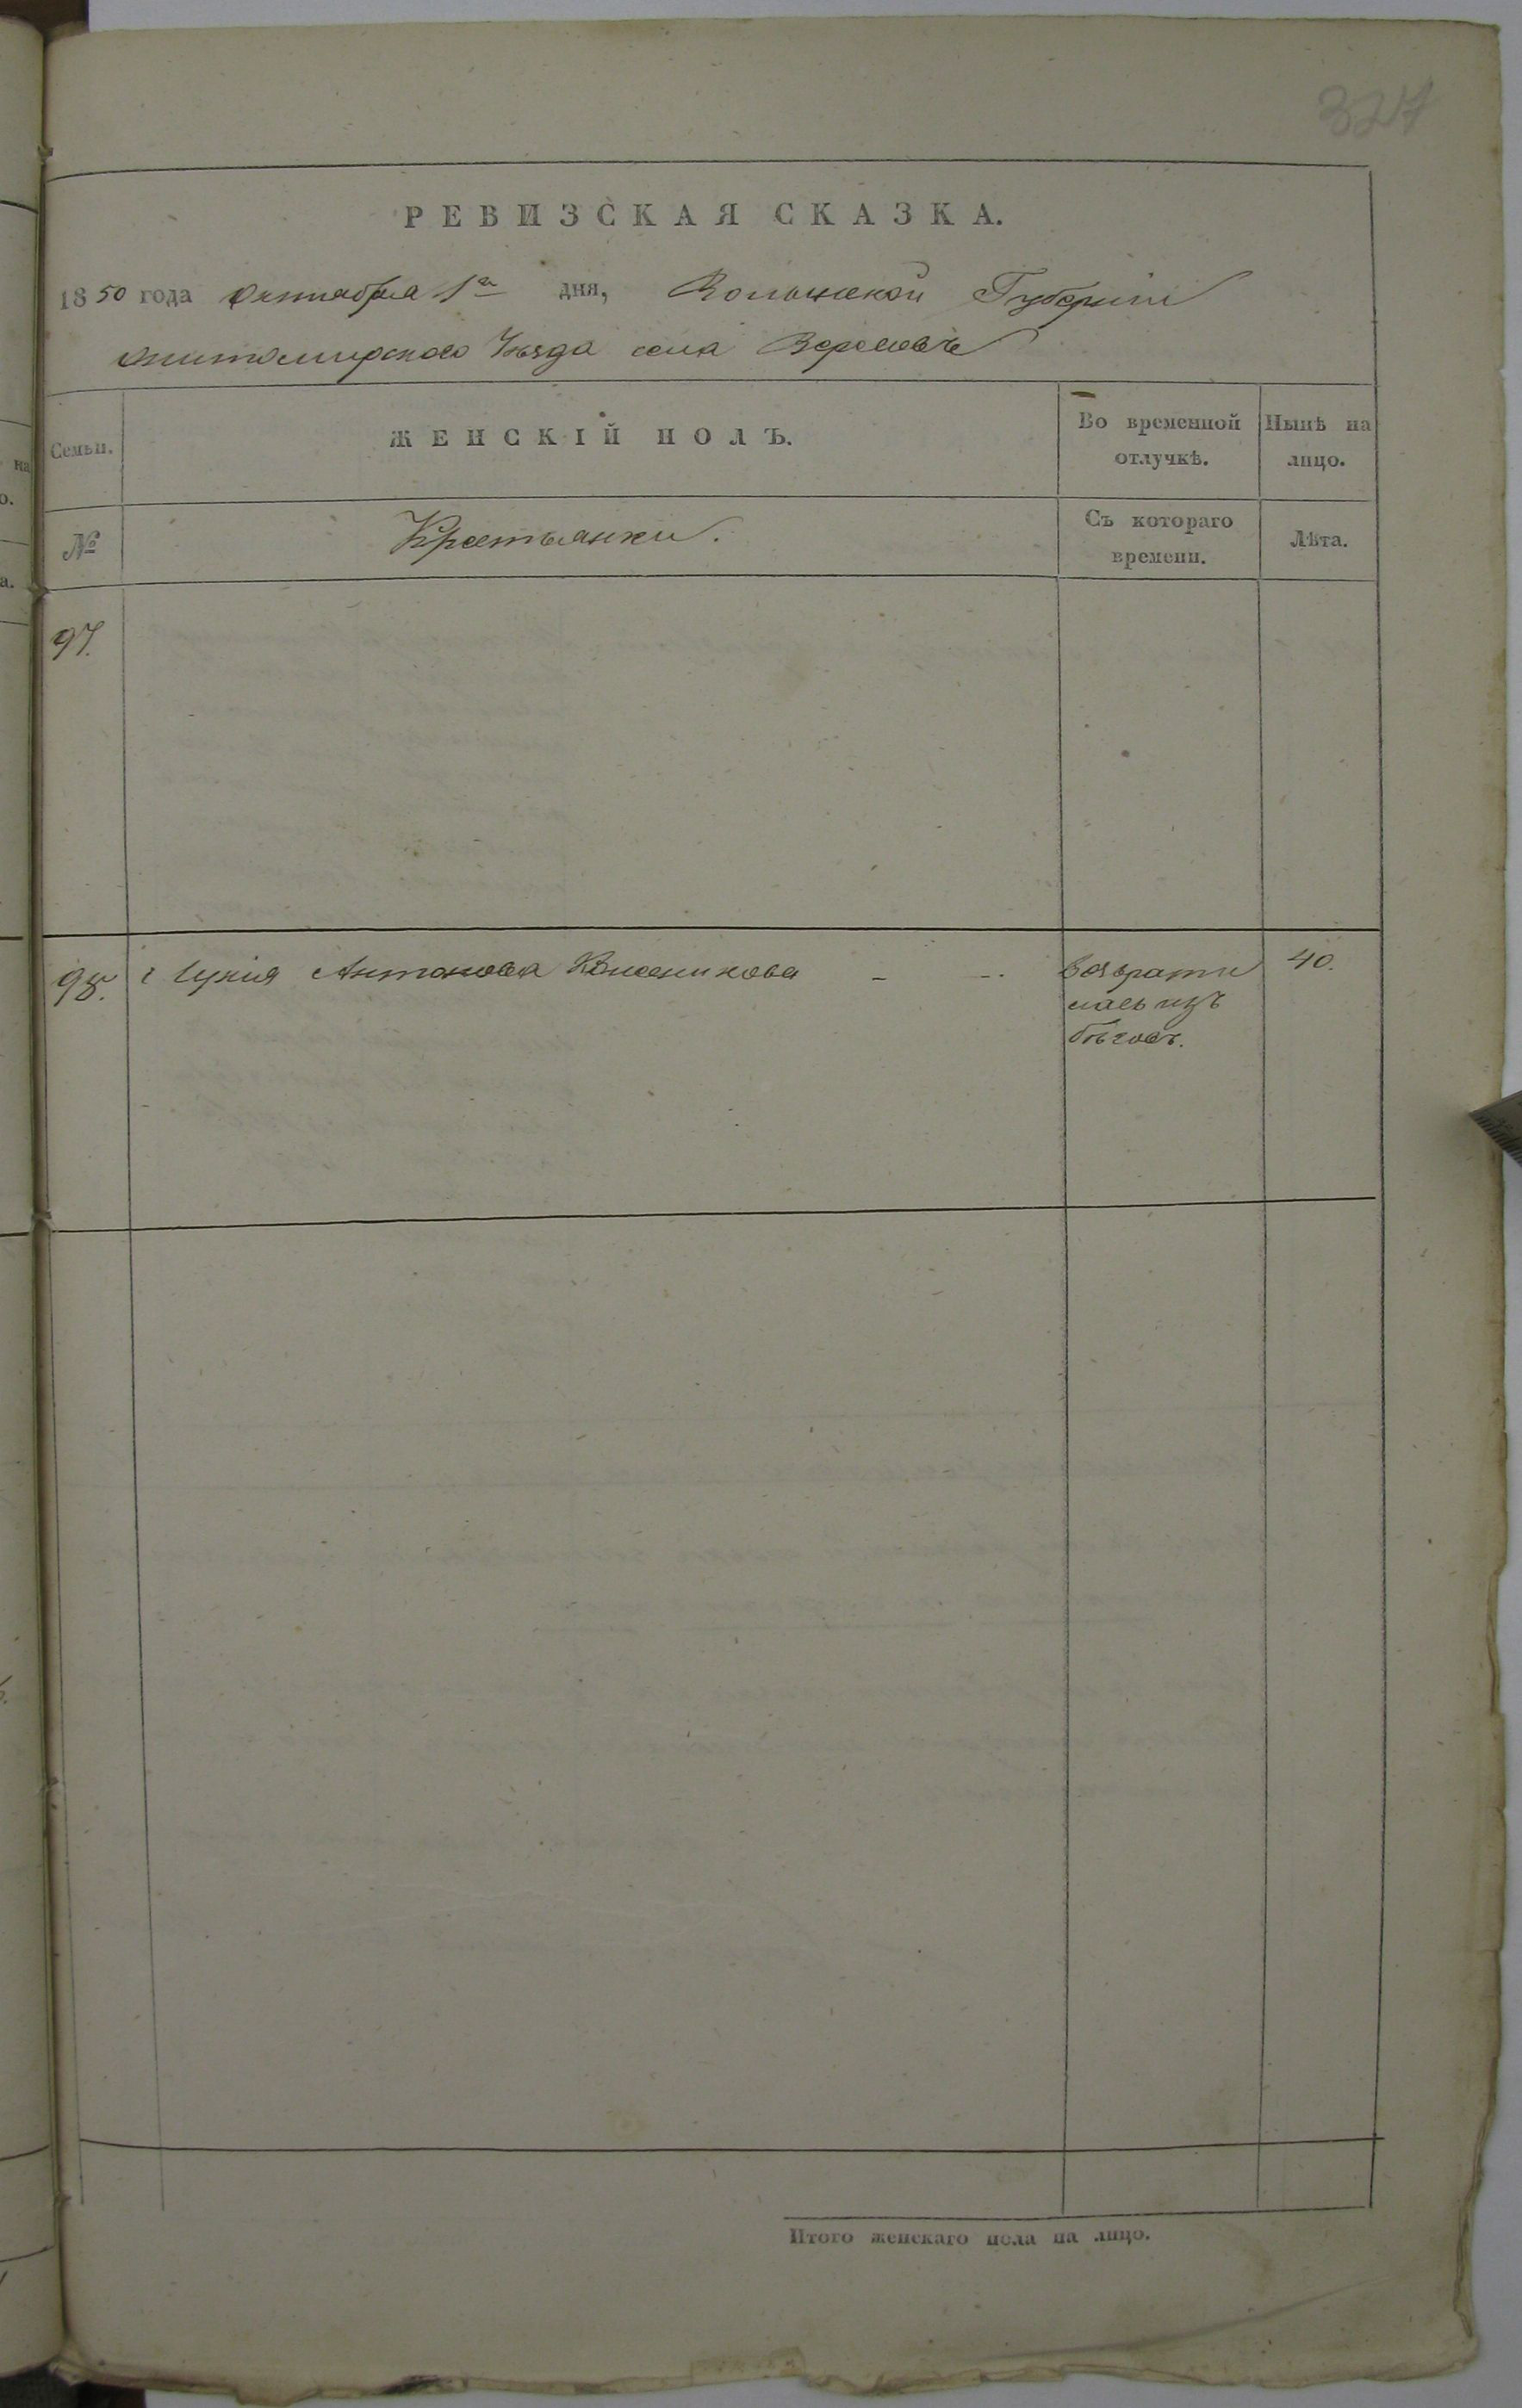 327
РЕВИЗСКАЯ СКАЗКА.
1850 года Октября 1го дня, Волынской Губерніи
Житомирского Уѣзда села Вересовъ
Семьи.
ЖЕНСКІЙ ПОЛЪ.
Во временной отлучкѣ.
Нынѣ на лицо.
№
Крестьянки.
Съ котораго времени.
Лѣта.
97.
98. Антонова возврати 40.
лась изъ
бѣговъ.
Итого женскаго пола на лицо.
на
о.
а.